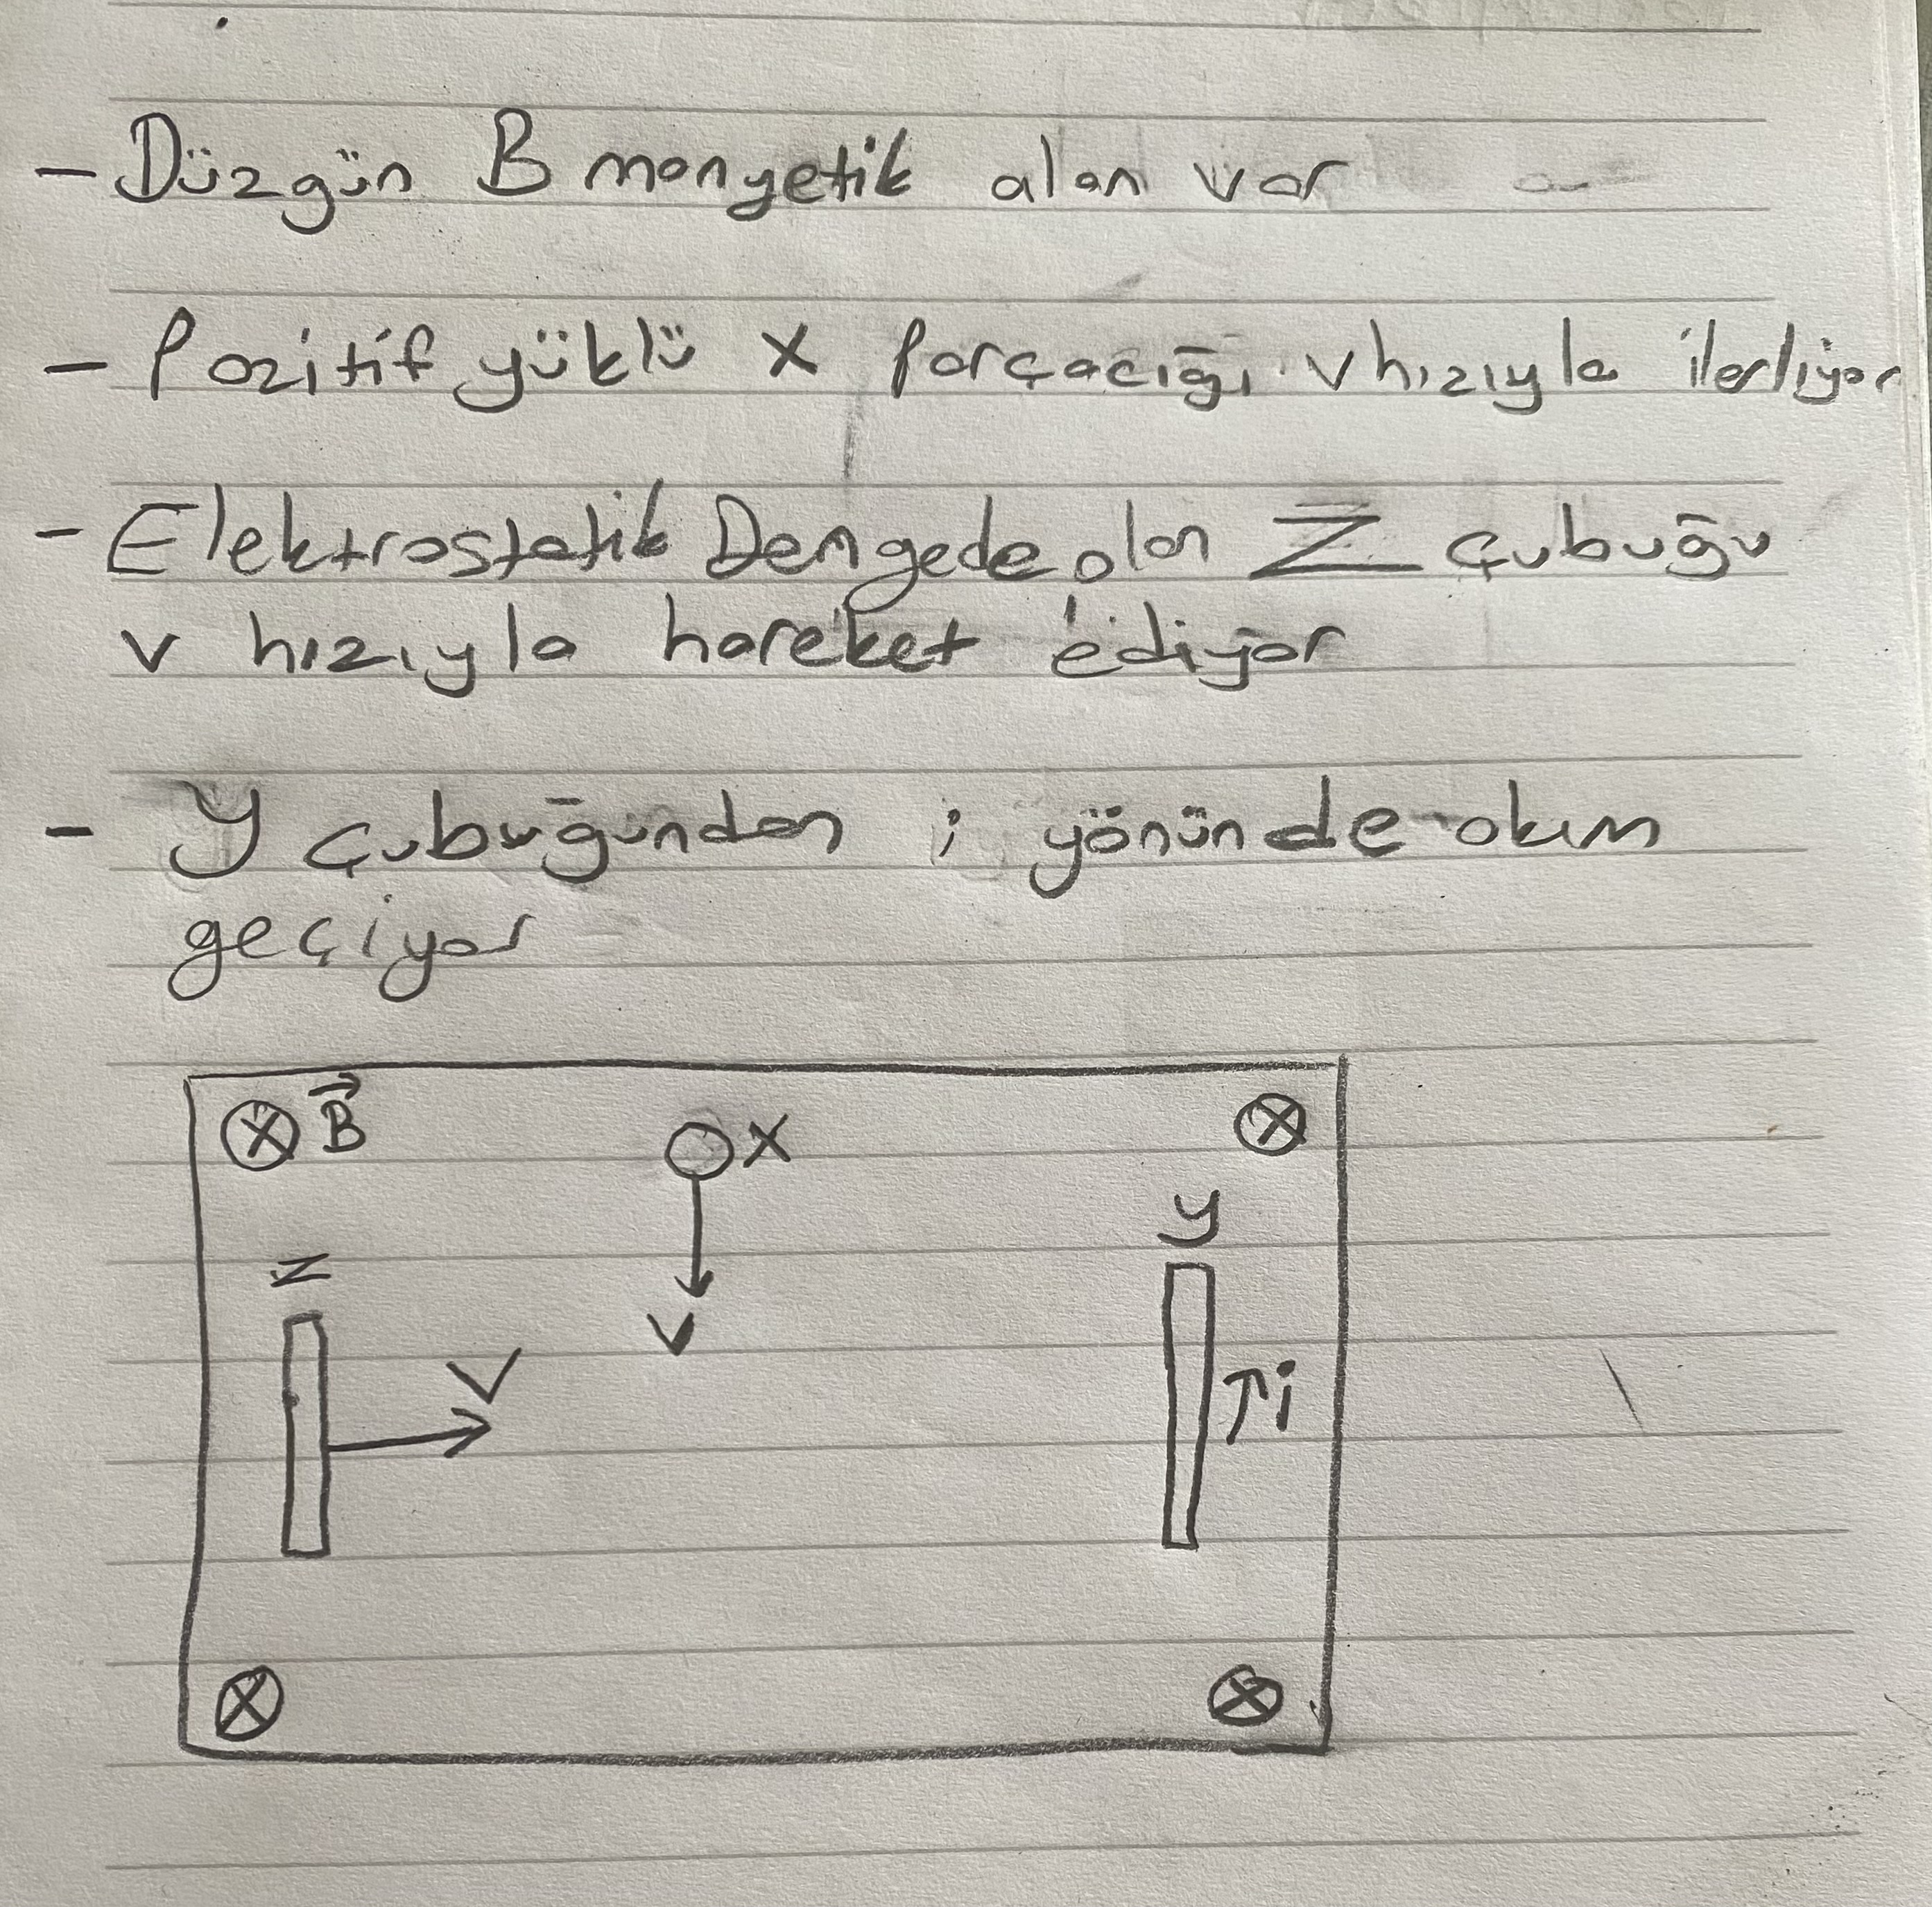 - Düzgün B manyetik alan var
- Pozitif yüklü X parçacığı v hızıyla ilerliyor
- Elektrostatik Dengede olan Z çubuğu
v hızıyla hareket ediyor
- Y çubuğundan i yönünde akım
geçiyor
B
X
y
Z
V
V
i